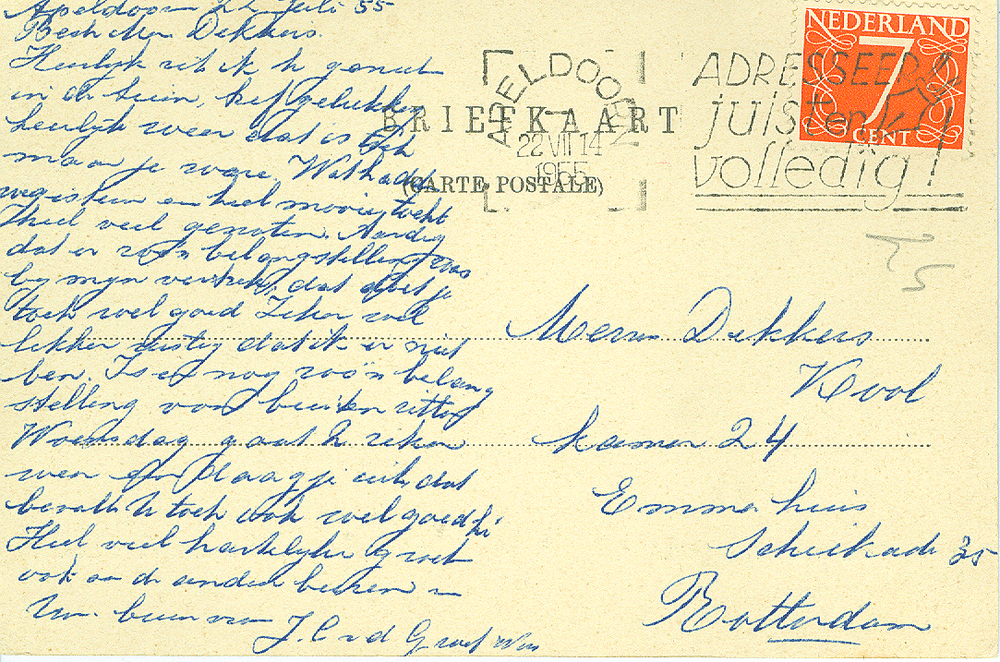 Apeldoorn 22 Juli 55
Beste Mevr Dekkers.
Heerlijk zit ik te geniet
in de tuin, het gelukkig
heerlijk weer dat is ook
maar je ware. Wat had
gisteren een heel mooie tocht
heel veel genoten. Aardig
dat er zo'n belangstelling was
bij mijn vertrek, dat doet je
toch wel goed Zeker wel
lekker rustig dat ik er niet
ben. Is er nog zo'n belang
stelling voor buiten zitten
Woensdag gaat U zeker
weer een daagje uit, dat
bevalt U toch ook wel goed hé
Heel veel hartelijke groet
ook aan de andere
Uw buurvrouw
J. C. v d Graaf
NEDERLAND
7
CENT
APELDOORN
22 VII 14
1955
ADRESSEER
juist en
volledig!
BRIEFKAART
(CARTE POSTALE)
Mevr Dekkers
Kool
kamer 24
Emmahuis
Schiekade 35
Rotterdam